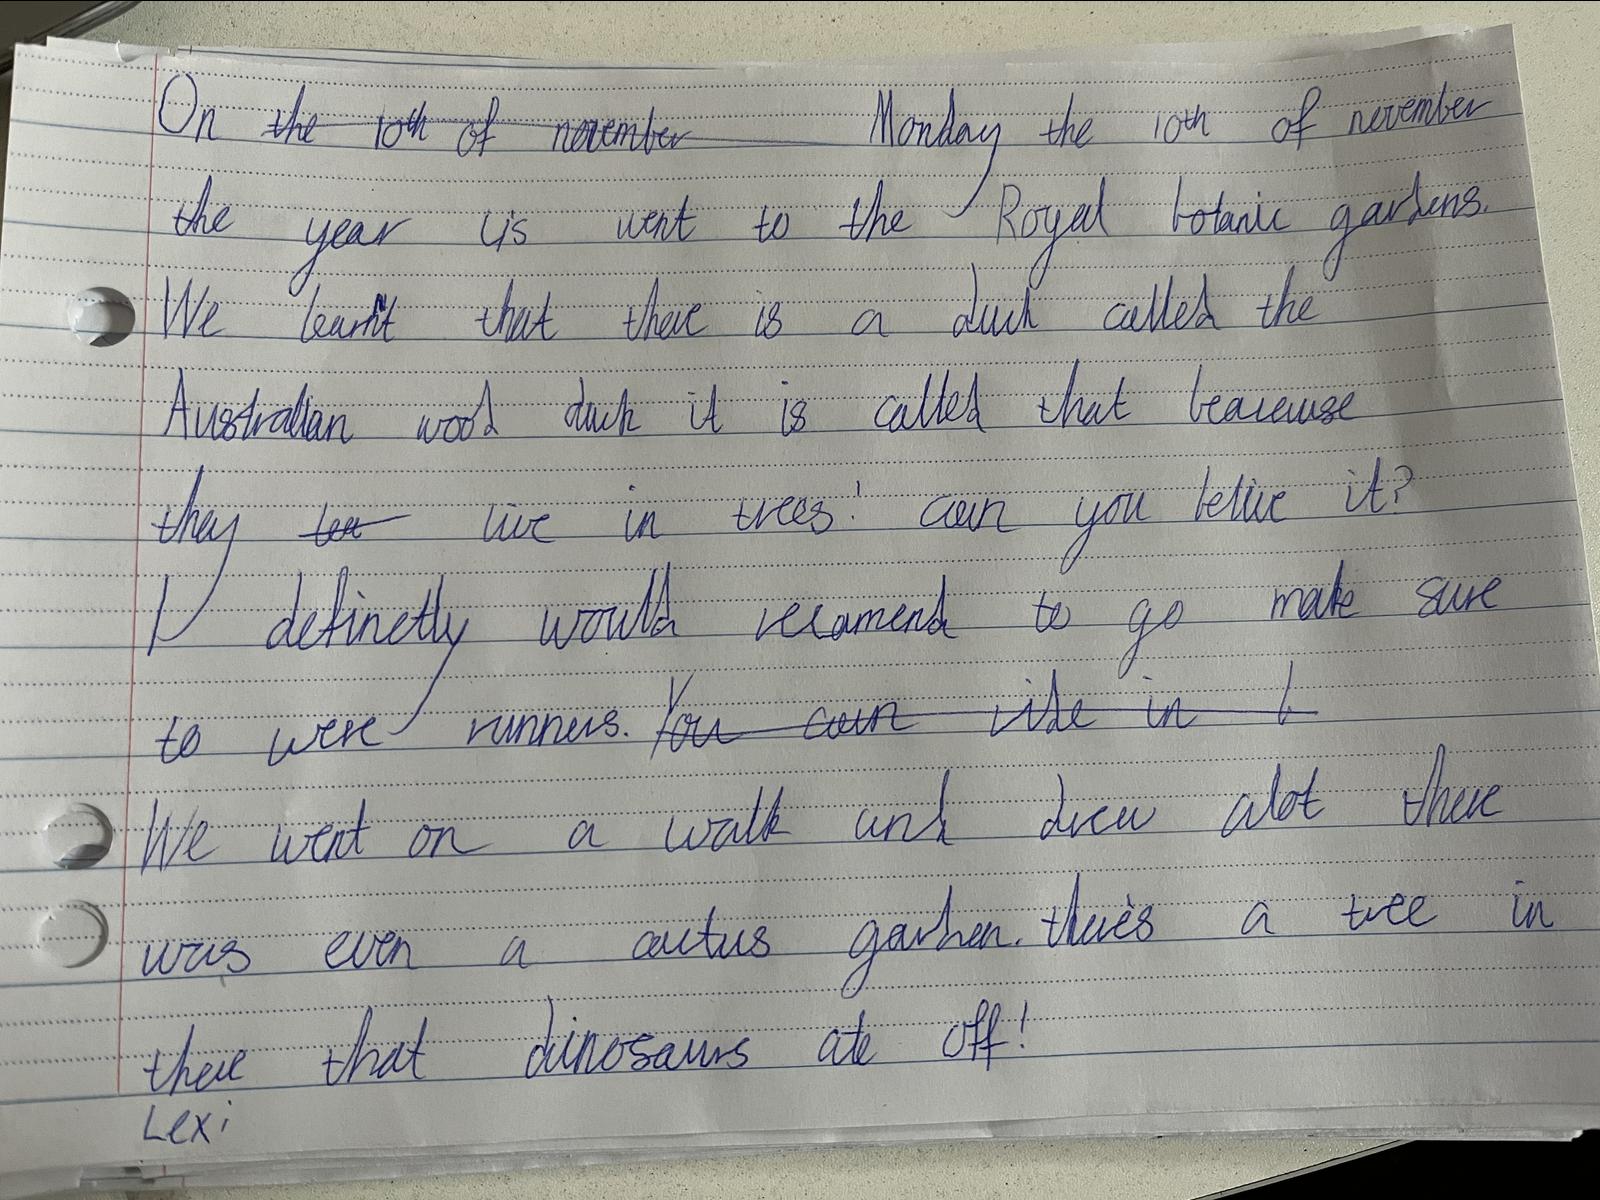 On the 10th of november Monday the 10th of november
the year 4/5 went to the Royal botanic gardens.
We learnt that there is a duck called the
Australian wood duck it is called that beacuse
they live in trees! can you belive it?
I definetly would recamend to go make sure
to were runners. You can ride in
We went on a walk and drew alot there
was even a cactus garden. there's a tree in
there that dinosaurs ate off!
Lexi